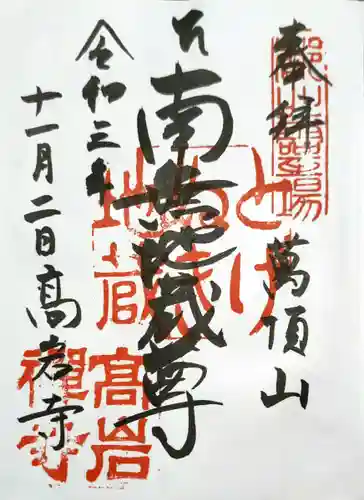 奉拝
萬頂山
南無地蔵尊
令和三年
十一月二日
高岩寺
とげぬき
地蔵
高岩
禅寺